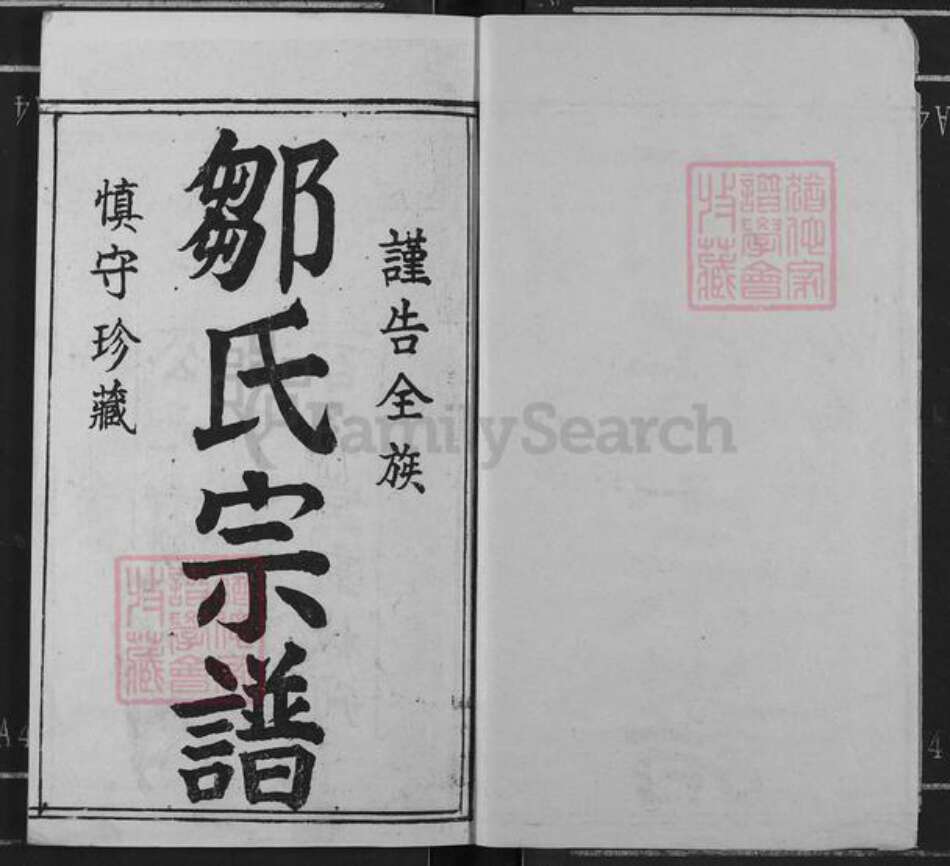 謹告全族
鄒氏宗譜
慎守珍藏
猶他家
譜學會
收藏
猶他家
譜學會
收藏
FamilySearch